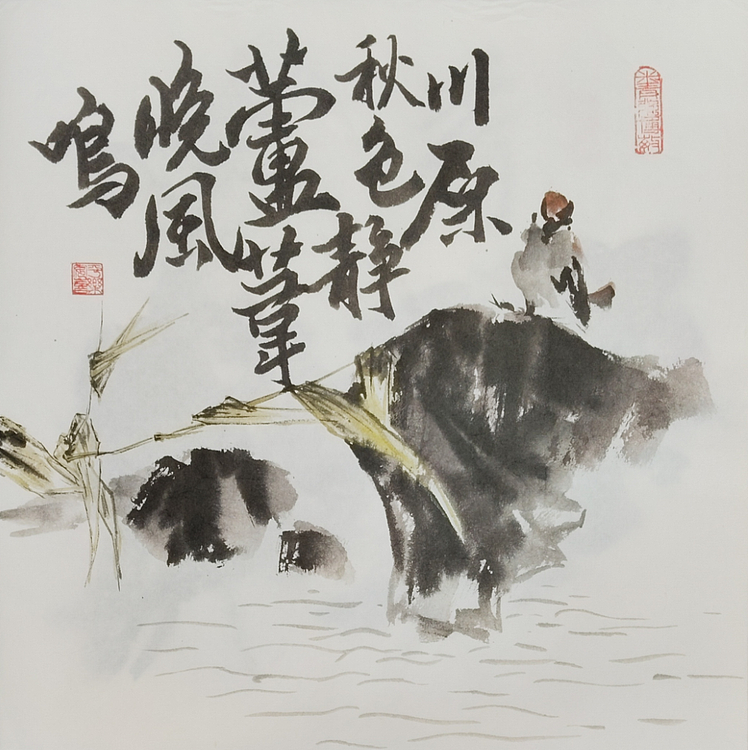 川原
秋色静
蘆葦
晚風
鳴